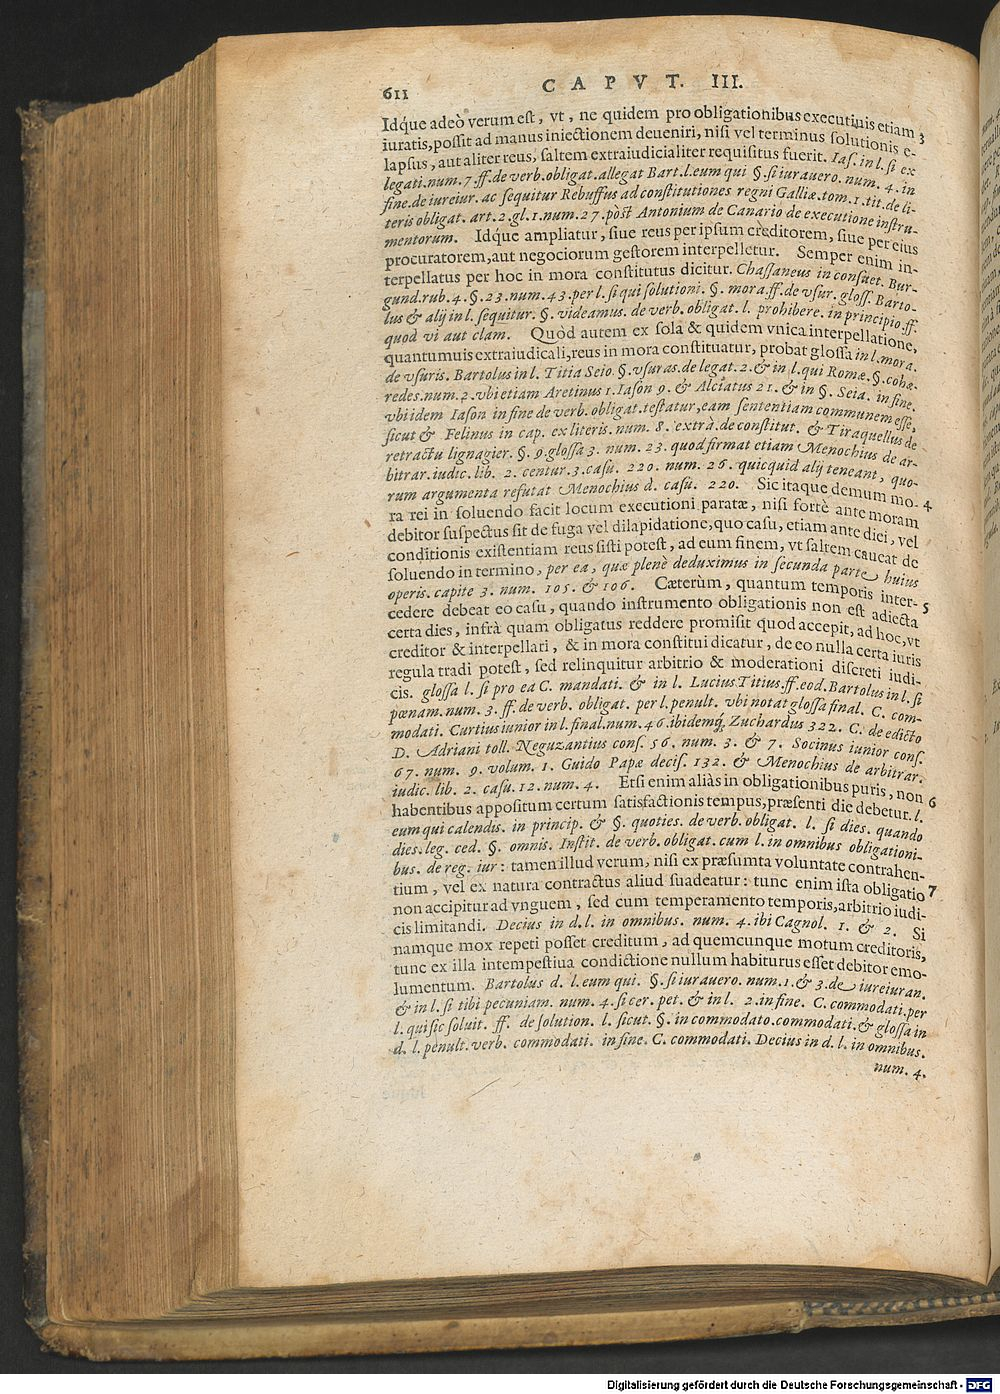 611
CAPVT. III.
Idq́ue adeò verum est, vt, ne quidem pro obligationibus executiuis etiam 3
iuratis, possit ad manus iniectionem deueniri, nisi vel terminus solutionis e-
lapsus, aut aliter reus, saltem extraiudicialiter requisitus fuerit. Ias. in l. si ex
legati. num. 7. ff. de verb. obligat. allegat Bart. l. eum qui §. si iurauero. num. 4. in
fine. de iureiur. ac sequitur Rebuffus ad constitutiones regni Galliæ. tom. 1. tit. de li-
teris obligat. art. 2. gl. 1. num. 27. pòst Antonium de Canario de executione instru-
mentorum. Idq́ue ampliatur, siue reus per ipsum creditorem, siue per eius
procuratorem, aut negociorum gestorem interpelletur. Semper enim in-
terpellatus per hoc in mora constitutus dicitur. Chassaneus in consuet. Bur-
gund. rub. 4. §. 23. num. 43. per l. si qui solutioni. §. mora. ff. de vsur. gloss. Barto-
lus & alij in l. sequitur. §. videamus. de verb. obligat. l. prohibere. in principio. ff.
quod vi aut clam. Quòd autem ex sola & quidem vnica interpellatione,
quantumuis extraiudicali, reus in mora constituatur, probat glossa in l. mora.
de vsuris. Bartolus in l. Titia Seio. §. vsuras. de legat. 2. & in l. qui Romæ. §. cohæ-
redes. num. 2. vbi etiam Aretinus 1. Iason 9. & Alciatus 21. & in §. Seia. in fine.
vbi idem Iason in fine de verb. obligat. testatur, eam sententiam communem esse,
sicut & Felinus in cap. ex literis. num. 8. extrà. de constitut. & Tiraquellus de
retractu lignagier. §. 9. glossa 3. num. 23. quod firmat etiam Menochius de ar-
bitrar. iudic. lib. 2. centur. 3. casu. 220. num. 26. quicquid alij teneant, quo-
rum argumenta refutat Menochius d. casu. 220. Sic itaque demum mo- 4
ra rei in soluendo facit locum executioni paratæ, nisi fortè ante moram
debitor suspectus sit de fuga vel dilapidatione, quo casu, etiam ante diei, vel
conditionis existentiam reus sisti potest, ad eum finem, vt saltem caueat de
soluendo in termino, per ea, quæ plenè deduximus in secunda parte huius
operis. capite 3. num. 105. & 106. Cæterùm, quantum temporis inter- 5
cedere debeat eo casu, quando instrumento obligationis non est adiecta
certa dies, infrà quam obligatus reddere promisit quod accepit, ad hoc, vt
creditor & interpellari, & in mora constitui dicatur, de eo nulla certa iuris
regula tradi potest, sed relinquitur arbitrio & moderationi discreti iudi-
cis. glossa l. si pro ea C. mandati. & in l. Lucius Titius. ff. eod. Bartolus in l. si
pœnam. num. 3. ff. de verb. obligat. per l. penult. vbi notat glossa final. C. com-
modati. Curtius iunior in l. final. num. 46. ibidemq́; Zuchardus 322. C. de edicto
D. Adriani toll. Neguzantius cons. 56. num. 3. & 7. Socinus iunior cons.
67. num. 9. volum. 1. Guido Papæ decis. 132. & Menochius de arbitrar.
iudic. lib. 2. casu. 12. num. 4. Etsi enim aliàs in obligationibus puris, non 6
habentibus appositum certum satisfactionis tempus, præsenti die debetur. l.
eum qui calendis. in princip. & §. quoties. de verb. obligat. l. si dies. quando
dies. leg. ced. §. omnis. Instit. de verb. obligat. cum l. in omnibus obligationi-
bus. de reg. iur: tamen illud verum, nisi ex præsumta voluntate contrahen-
tium, vel ex natura contractus aliud suadeatur: tunc enim ista obligatio 7
non accipitur ad vnguem, sed cum temperamento temporis, arbitrio iudi-
cis limitandi. Decius in d. l. in omnibus. num. 4. ibi Cagnol. 1. & 2. Si
namque mox repeti posset creditum, ad quemcunque motum creditoris,
tunc ex illa intempestiua condictione nullum habiturus esset debitor emo-
lumentum. Bartolus d. l. eum qui. §. si iurauero. num. 1. & 3. de iureiuran.
& in l. si tibi pecuniam. num. 4. si cer. pet. & in l. 2. in fine. C. commodati. per
l. qui sic soluit. ff. de solution. l. sicut. §. in commodato. commodati. & glossa in
d. l. penult. verb. commodati. in fine. C. commodati. Decius in d. l. in omnibus.
num. 4.
Digitalisierung gefördert durch die Deutsche Forschungsgemeinschaft - DFG